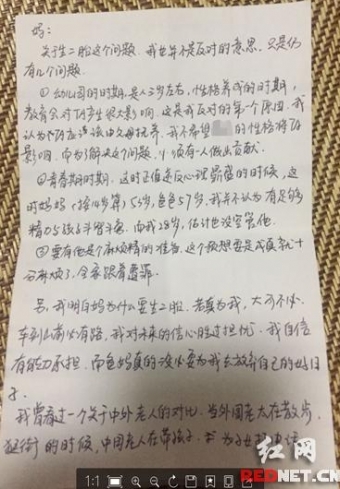 妈:
关于生二胎这个问题,我也并不是反对的意思,只是仍
有几个问题
①幼儿园的时期,是人3岁左右,性格养成的时期,
教育会对TA产生很大影响,这是我反对的第一个原因,我
认为TA应该由父母抚养,我不希望 的性格将TA
影响,而为了解决这个问题,必须有一人做出贡献.
②青春期时期,这时正值是反心理 的时候,这
时妈妈(按40岁算)55岁,爸爸57岁,我并不认为有足够
精力与孩子斗智斗勇,而我28岁,估计也没空管他.
③要有他是个麻烦精的准备,这个预想要是成真就十
分麻烦了,全家跟着遭罪.
另,我明白妈为什么要生二胎,若真为我,大可不必.
车到山前必有路,我对未来的信心胜过担忧,我自信
有能力承担,而爸妈真的没必要为我去放弃自己的好日
子.
我曾看过一个关于中外老人的对比,当外国老太在散步,
逛街的时候,中国老人在带孩子,
红网
REDNET.CN
1:1